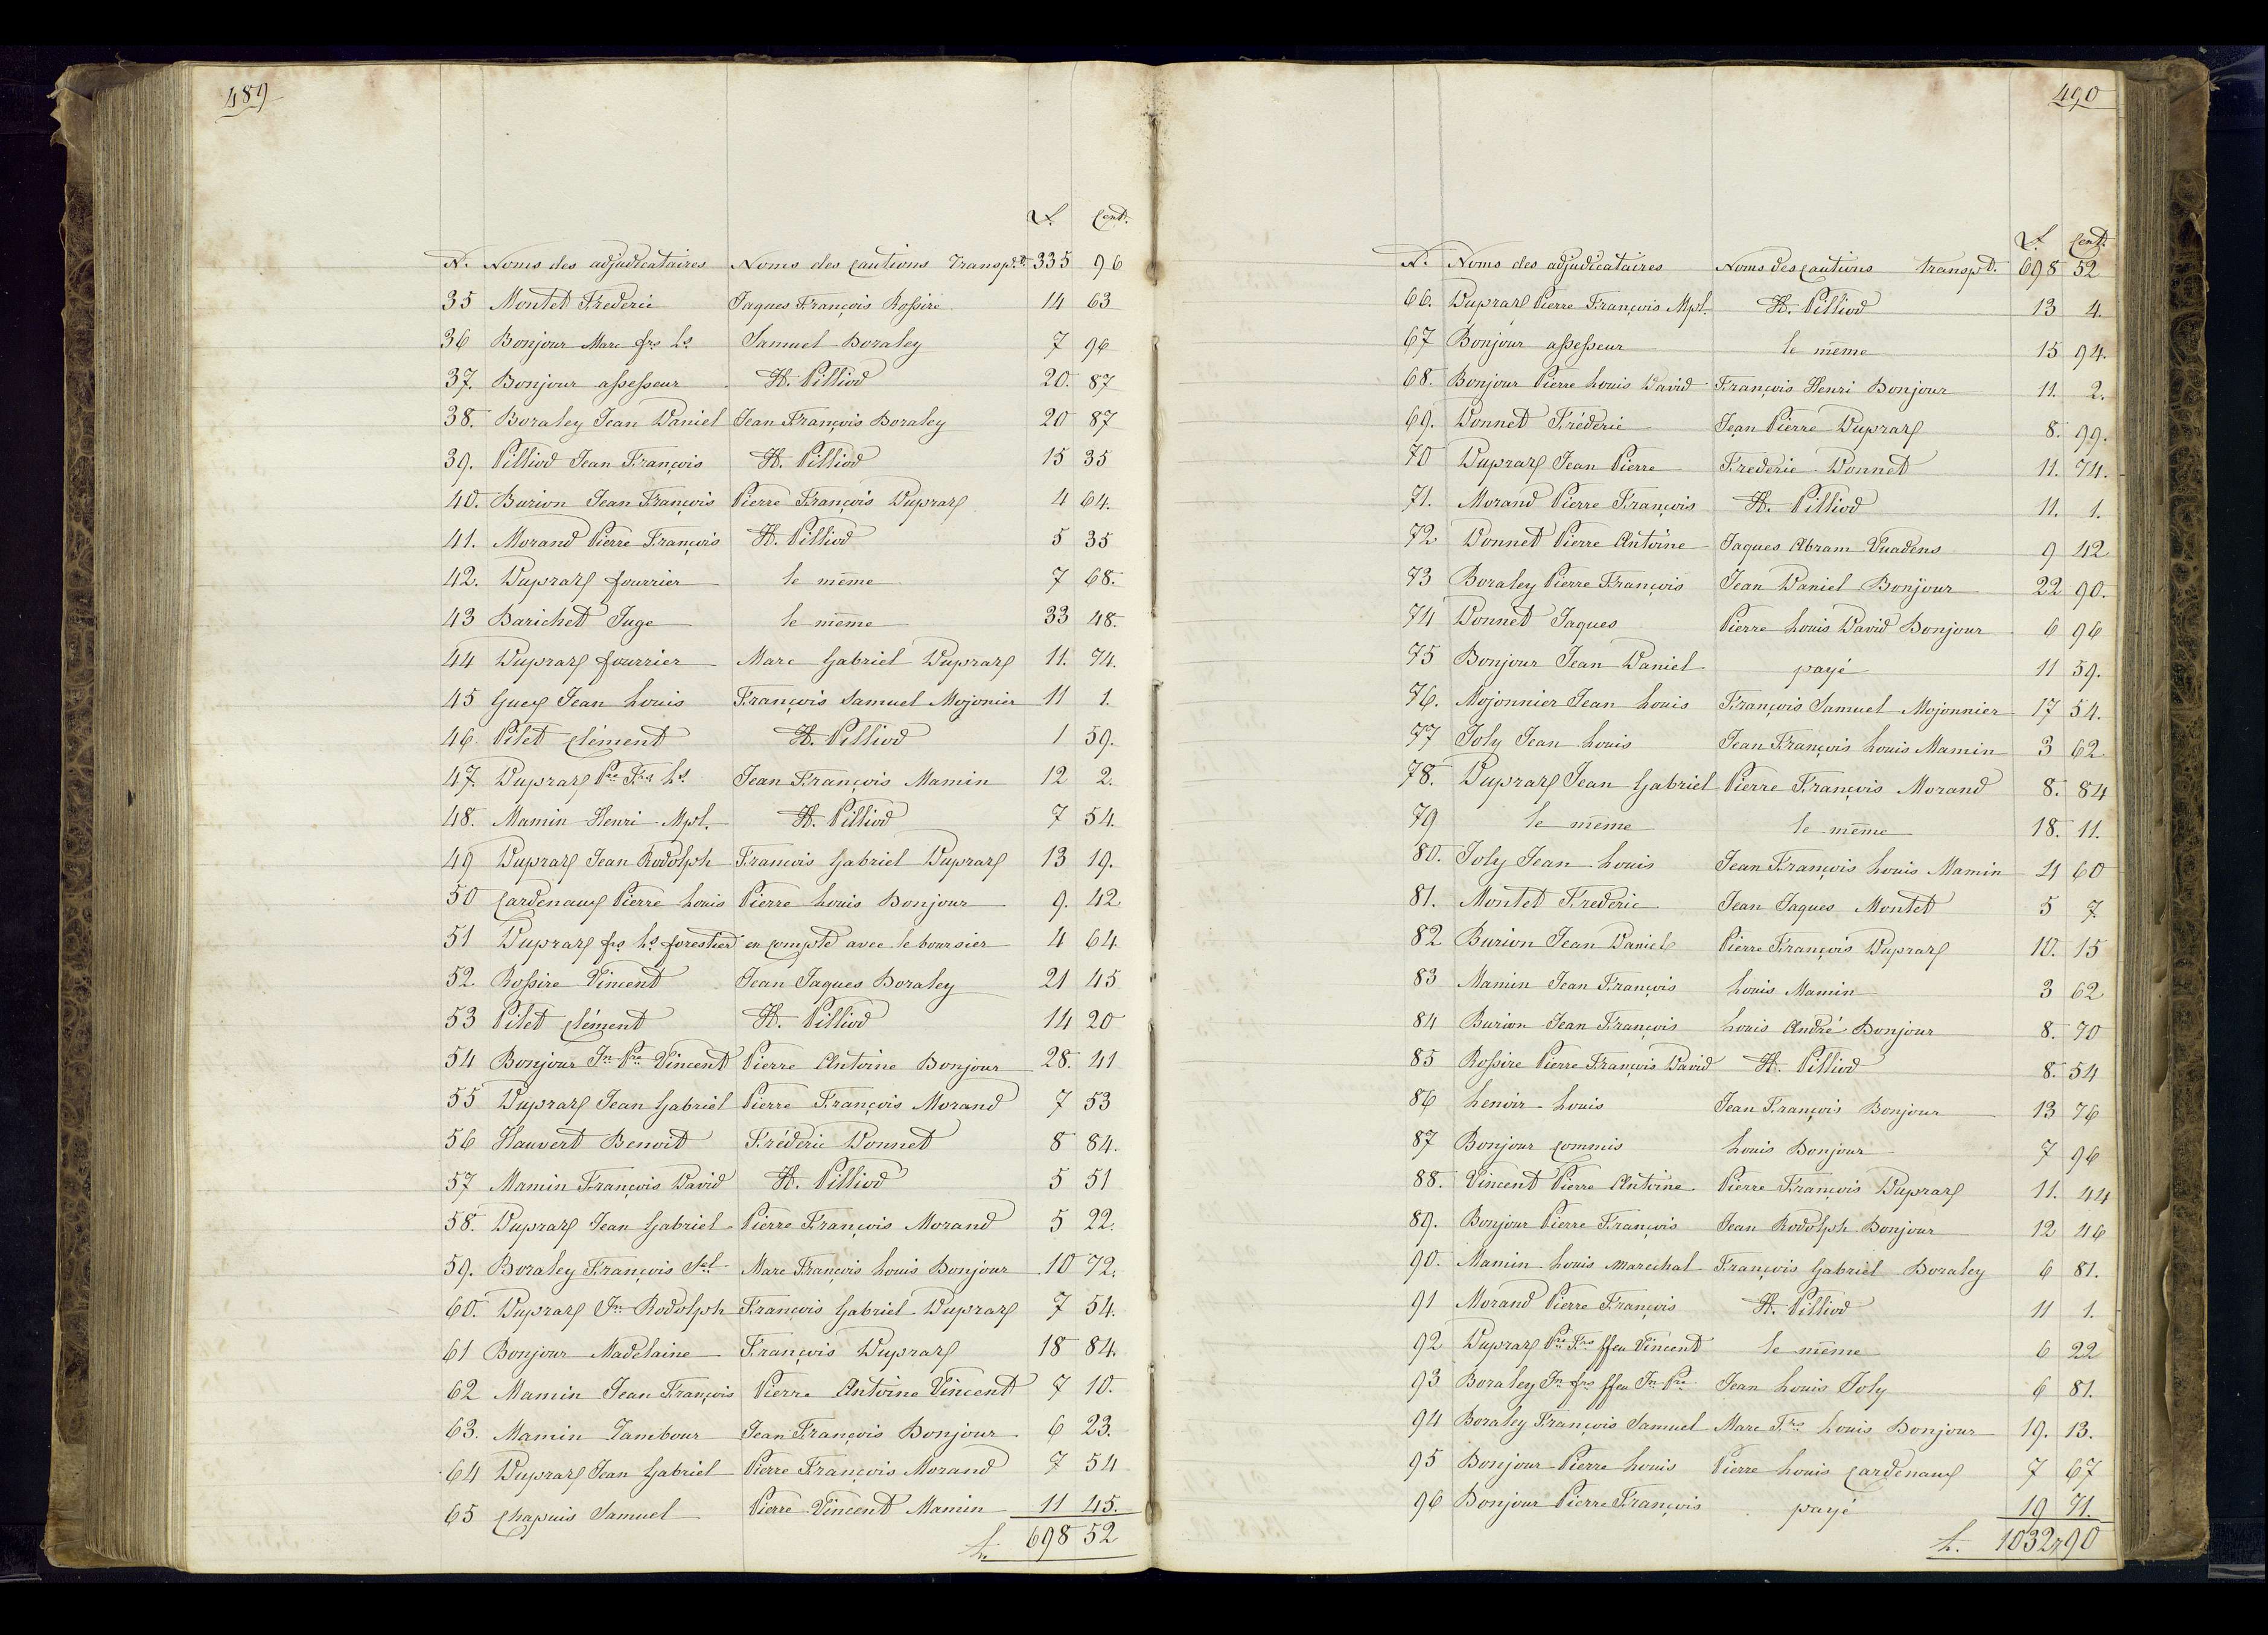 489
L. Cent.
N. Noms des adjudicataires Noms des cautions Transpt. 335 96
35 Montet Frederic Jaques François Rossire 14 63
36 Bonjour Marc frs Ls Samuel Boraley 7 96
37. Bonjour assesseur H. Pilliod 20. 87
38. Boraley Jean Daniel Jean François Boraley 20 87
39. Pilliod Jean François H. Pilliod 15 35
40. Burion Jean François Pierre François Duprazs 4 64.
41. Morand Pierre François H. Pilliod 5 35
42. Duprazs fourrier le même 7 68.
43 Barichet Juge le même 33 48.
44 Duprazs fourrier Marc Gabriel Duprazs 11. 74.
45 Guex Jean Louis François Samuel Mojonier 11 1.
46. Pilet Clément H. Pilliod 1 59.
47. Duprazs Pre Frs Ls Jean François Mamin 12 2.
48. Mamin Henri Mpl. H. Pilliod 7 54.
49 Duprazs Jean Rodolph François Gabriel Duprazs 13 19.
50 Cardenaux Pierre Louis Pierre Louis Bonjour 9. 42
51 Duprazs frs Ls forestier en compte avec le boursier 4 64
52. Rossire Vincent Jean Jaques Boraley 21 45
53 Pilet Clément H. Pilliod 14 20
54 Bonjour Jn Pre Vincent Pierre Antoine Bonjour 28. 41
55 Duprazs Jean Gabriel Pierre François Morand 7 53
56 Hauvert Benoit Fréderic Donnet 8 84.
57 Mamin François David H. Pilliod 5 51
58. Duprazs Jean Gabriel Pierre François Morand 5 22.
59. Boraley François Sel Marc François Louis Bonjour 10 72.
60. Duprazs Jn Rodolph François Gabriel Duprazs 7 54.
61 Bonjour Madelaine François Duprazs 18 84.
62 Mamin Jean François Pierre Antoine Vincent 7 10.
63. Mamin Tambour Jean François Bonjour 6 23.
64 Duprazs Jean Gabriel Pierre François Morand 7 54
65 Chapuis Samuel Pierre Vincent Mamin 11 45.
L. 698 52
490
L. Cent.
N. Noms des adjudicataires Noms des cautions transpt. 698 52
66. Duprazs Pierre François Mpl. H. Pilliod 13 4.
67 Bonjour assesseur le même 15 94.
68. Bonjour Pierre Louis David François Henri Bonjour 11. 2.
69. Donnet Fréderic Jean Pierre Duprazs 8. 99.
70 Duprazs Jean Pierre Frederic Donnet 11. 74.
71. Morand Pierre François H. Pilliod 11. 1.
72. Donnet Pierre Antoine Jaques Abram Vuadens 9 42
73 Boraley Pierre François Jean Daniel Bonjour 22 90.
74 Donnet Jaques Pierre Louis David Bonjour 6 96
75 Bonjour Jean Daniel payé 11 59.
76. Mojonnier Jean Louis François Samuel Mojonnier 17 54.
77 Joly Jean Louis Jean François Louis Mamin 3 62
78. Duprazs Jean Gabriel Pierre François Morand 8. 84
79 le même le même 18. 11.
80. Joly Jean Louis Jean François Louis Mamin 4 60
81. Montet Frederic Jean Jaques Montet 5 7
82 Burion Jean Daniel Pierre François Duprazs 10. 15
83 Mamin Jean François Louis Mamin 3 62
84 Burion Jean François Louis André Bonjour 8. 70
85 Rossire Pierre François David H. Pilliod 8. 54
86 Lenoir Louis Jean François Bonjour 13 76
87 Bonjour commis Louis Bonjour 7 96
88. Vincent Pierre Antoine Pierre François Duprazs 11. 44
89. Bonjour Pierre François Jean Rodolph Bonjour 12 46
90. Mamin Louis marechal François Gabriel Boraley 6 81.
91 Morand Pierre François H. Pilliod 11 1.
92 Duprazs Pre Frs ffeu Vincent le même 6 22
93 Boraley Jn frs ffeu Jn Pre Jean Louis Joly 6 81.
94 Boraley François Samuel Marc Frs Louis Bonjour 19. 13.
95 Bonjour Pierre Louis Pierre Louis Cardenaux 7 67
96 Bonjour Pierre François payé 19 71.
L. 1032,90